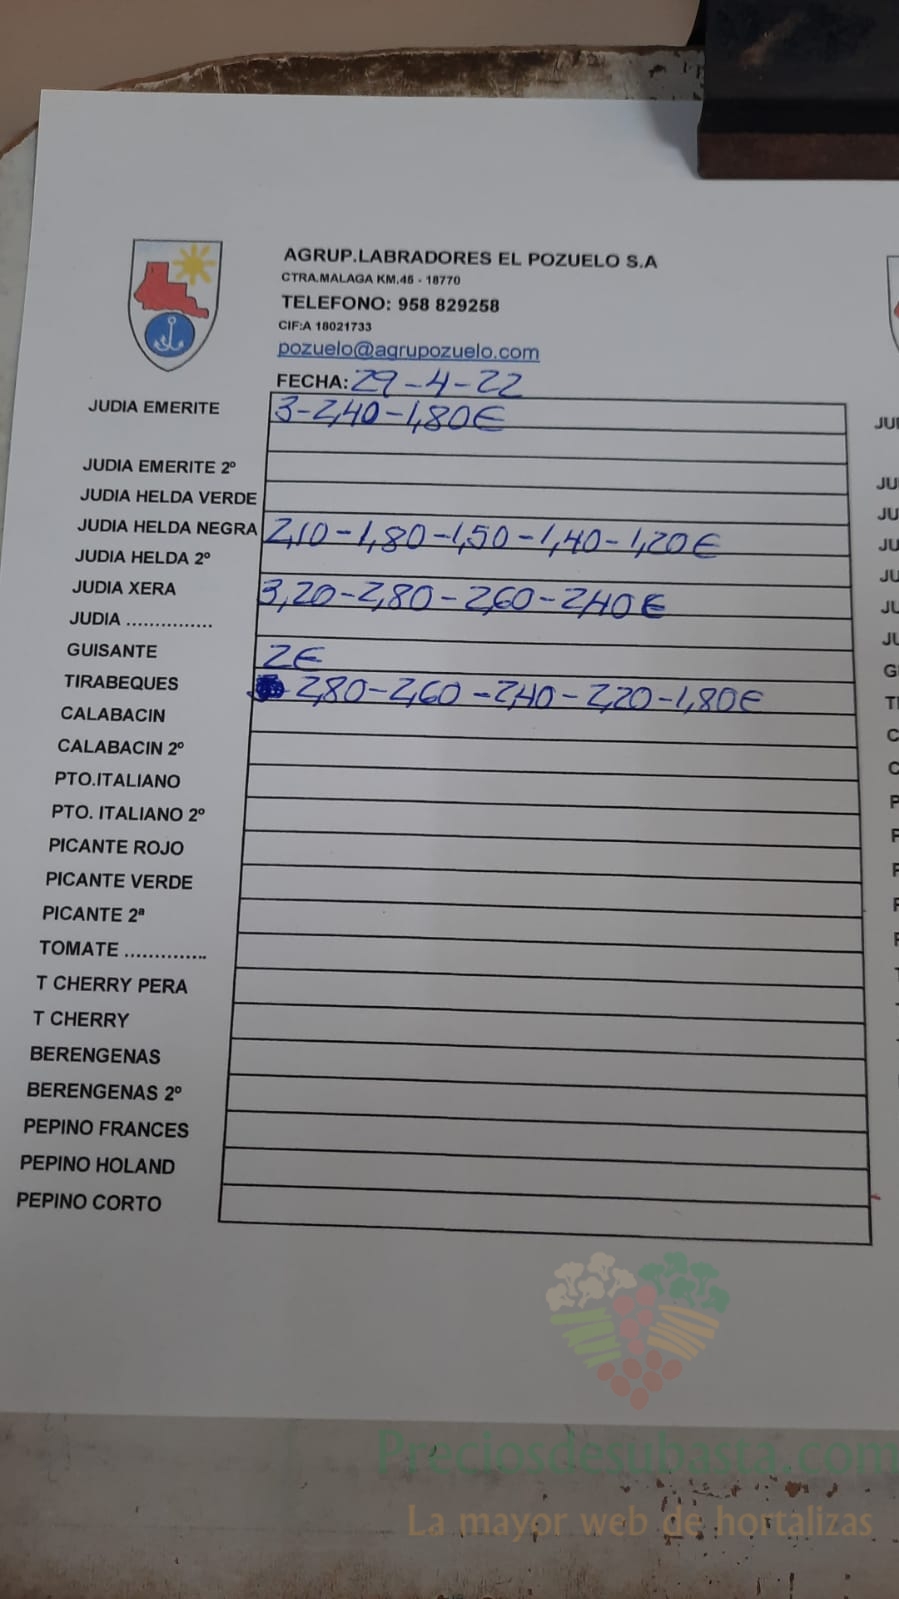 AGRUP.LABRADORES EL POZUELO S.A
CTRA.MALAGA KM,45 - 18770
TELEFONO: 958 829258
CIF:A 18021733
pozuelo@agrupozuelo.com
FECHA: 29-4-22
JUDIA EMERITE 3-2,40-1,80€
JUDIA EMERITE 2º
JUDIA HELDA VERDE
JUDIA HELDA NEGRA 2,10-1,80-1,50-1,40-1,20€
JUDIA HELDA 2º
JUDIA XERA 3,20-2,80-2,60-2,40€
JUDIA ...............
GUISANTE 2€
TIRABEQUES 2,80-2,60-2,40-2,20-1,80€
CALABACIN
CALABACIN 2º
PTO.ITALIANO
PTO. ITALIANO 2º
PICANTE ROJO
PICANTE VERDE
PICANTE 2ª
TOMATE ..............
T CHERRY PERA
T CHERRY
BERENGENAS
BERENGENAS 2º
PEPINO FRANCES
PEPINO HOLAND
PEPINO CORTO
Preciosdesubasta.com
La mayor web de hortalizas